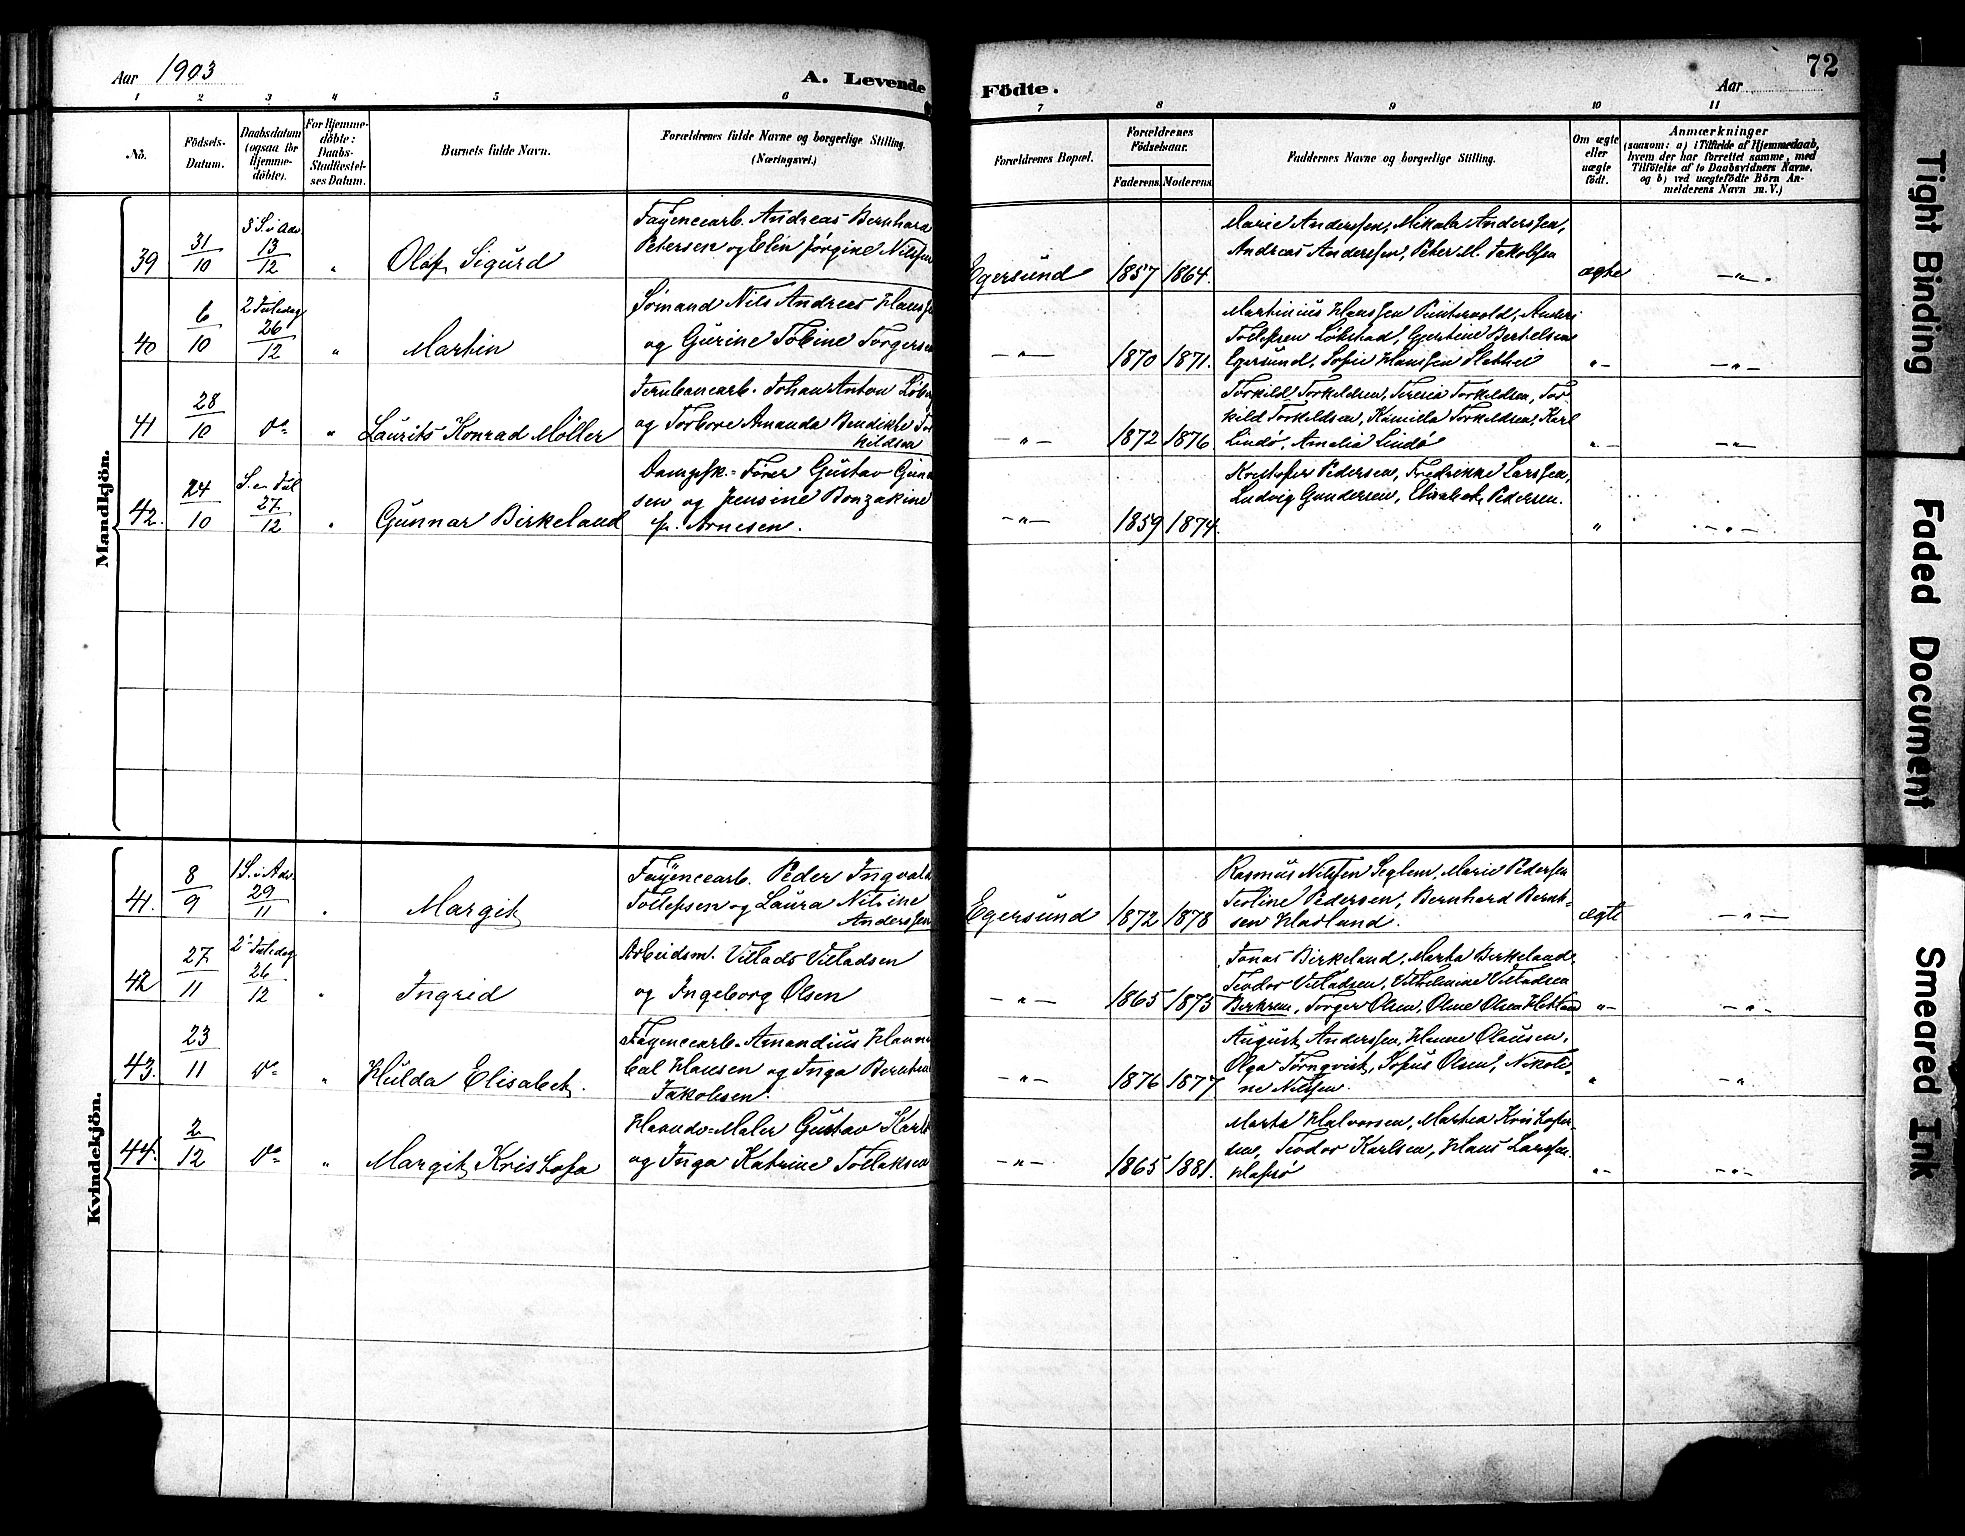 Aar 1903
A. Levende Födte.
Aar
72
1 2 3 4 5 6 7 8 9 10 11
No.
Födsels-Datum.
Daabsdatum (ogsaa for Hjemmedöbte).
For Hjemmedöbte: Daabs-Stadfæstelses Datum.
Barnets fulde Navn.
Forældrenes fulde Navne og borgerlige Stilling. (Næringsvei.)
Forældrenes Bopæl.
Forældrenes Födselsaar.
Faderens. Moderens.
Faddernes Navne og borgerlige Stilling.
Om ægte eller uægte födt.
Anmærkninger
(saasom: a) i Tilfælde af Hjemmedaab, hvem der har forrettet samme, med Tilföielse af to Daabsvidners Navne, og b) ved uægtefödte Börn Anmelderens Navn m. V.)
Mandkjön.
39 31/10 3 S. i Adv 13/12 " Olaf Sigurd
Fayencearb. Andreas Bernhard
Petersen og Elin Jørgine Nilssen
Egersund 1857 1864.
Marie Anderssen, Mikala Anderssen,
Andreas Anderssen, Peter M. Jakobsen
ægte —"—
40 6/10 2 Juledag 26/12 " Martin
Sømand Nils Andreas Hanssen
og Gurine Tobine Torgersen
—"— 1870 1871.
Martinius Hanssen
Egersund, Sofie Hanssen Slettebø
"— —"—
41 28/10 do " Laurits Konrad Møller
Jernbanearb. Johan Anton
og Torbore Amanda Bendikte Tor
kildsen
—"— 1872 1876
Torkild Torkildsen, Teresia Torkildsen, Tor
kild Torkildsen, Kamilla Torkildsen, Karl
Lindø, Amalia Lindø
"— —"—
42. 24/10 S. e. Jul 27/12 " Gunnar Birkeland
Dampsk.-Fører Gustav Gun
sen og Jensine Bonzakine
f. Arnesen.
—"— 1859 1874.
Kristofer Pedersen, Fredrikke Larssen,
Ludvig Gundersen, Elisabet Pedersen.
" —"—
Kvindekjön.
41. 8/9 1 S. i Adv 29/11 " Margit
Fayencearb. Peder Ingvald
Tollefsen og Laura Nilsine
Anderssen
Egersund 1872 1878
Rasmus Nilssen Seglem, Marie Pedersen
Teoline Pedersen, Bernhard Bernt-
sen Hadland.
ægte —"—
42 27/11 2 Juledag 26/12 " Ingrid
Arbeidsm. Villads Villadsen
og Ingeborg Olsen
—"— 1865 1875
Jonas Birkeland, Marta Birkeland,
Teodor Villadsen, Vilhelmine Villadsen
Birkrem, Torger Olsen, Oline Olsen Hetland
"— —"—
43. 23/11 do " Hulda Elisabet.
Fayencearb. Amandius Hanni
bal Hansen og Inga Berntine
Jakobsen.
—"— 1876 1877
August Anderssen, Hanne Olausen,
Olga Tørnqvist, Sofus Olsen, Nikoli-
ne Nilssen.
" —"
44. 2/12 do " Margit Kristofa
Haandv-Maler Gustav Karls
og Inga Katrine Tollaksen
—"— 1865 1881.
Marta Halvorsen, Martea Kristofer-
sen, Teodor Karlsen, Hans Larssen
Hafsø
"— —"—
Tight Binding
Faded Document
Smeared Ink